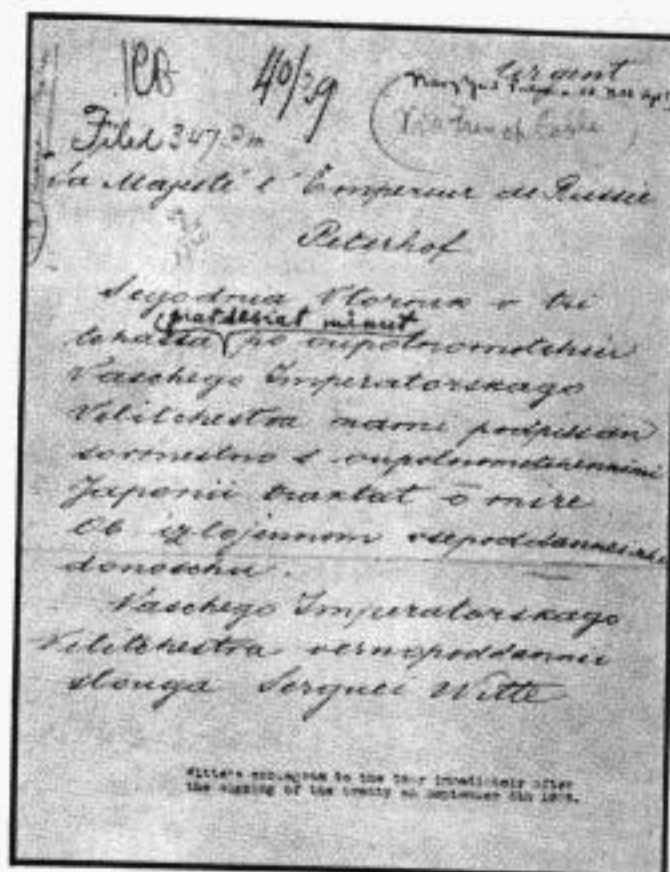 40/39
Urgent
Filed 347 Pm
Via French Cable
Sa Majesté l'Empereur de Russie
Peterhof
Segodnia Vtornik v tri
piatdesiat minut
tchassa po oupolnomotchiu
Vaschego Imperatorskago
Velitchestva nami podpissan
sovmestno s oupolnomotchennimi
Japonii traktat o mire
Ob izlojennom vsepoddanneische
donoschu.
Vaschego Imperatorskago
Velitchestva vernopoddannii
slouga Serguei Witte
Witte's cablegram to the tsar immediately after
the signing of the treaty on September 5th 1905.